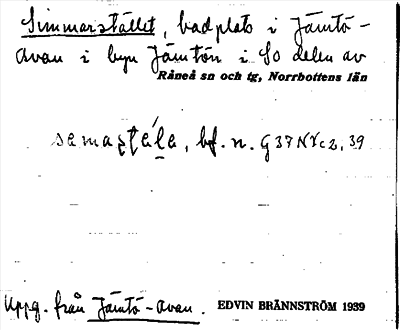 Simmarstället, badplats i Jämtö-
avan i byn Jämtön i So delen av
Råneå sn och tg, Norrbottens län
bf. n.
Uppg. från Jämtö-avan.
EDVIN BRÄNNSTRÖM 1939